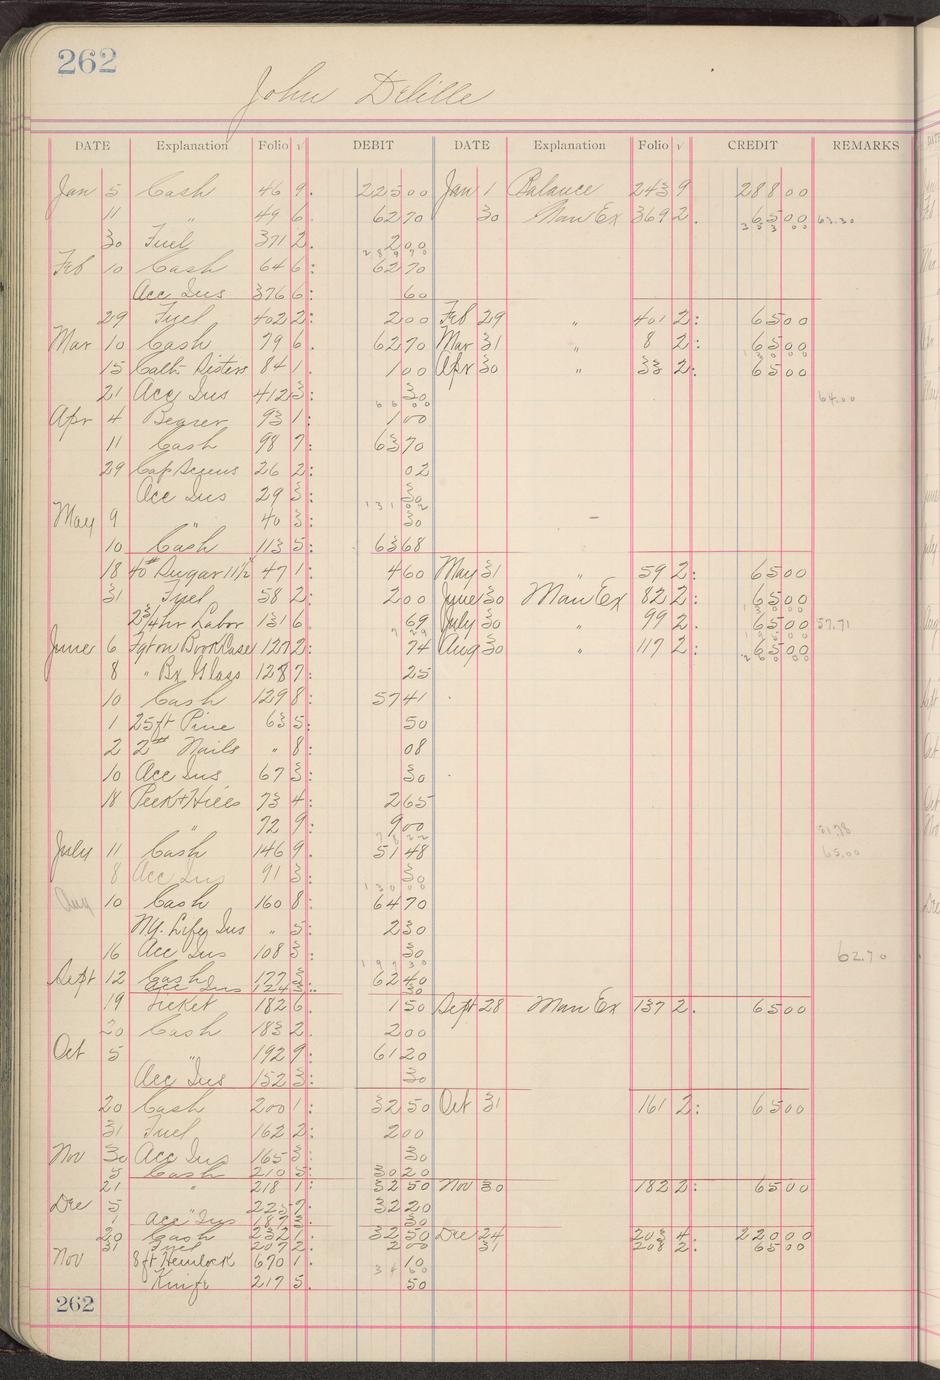 262
John Delille
DATE Explanation Folio √ DEBIT DATE Explanation Folio √ CREDIT REMARKS
Jan 5 Cash 46 9. 225 00 Jan 1 Balance 243 9 288 00
11 " 49 6. 62 70 30 Man Ex 369 2. 65 00 63.30
353 00
30 Fuel 371 2. 2 00
289 70
Feb 10 Cash 64 6: 62 70
Acc Ins 376 6: 60
29 Fuel 402 2: 2 00 Feb 29 " 401 2: 65 00
Mar 10 Cash 79 6. 62 70 Mar 31 " 8 2: 65 00
130 00
15 Cath Sisters 84 1. 1 00 Apr 30 " 33 2: 65 00
21 Acc Ins 412 3: 30 64.00
66 00
Apr 4 Bearer 93 1: 1 00
11 Cash 98 7: 63 70
29 Cap Screws 26 2: 02
Acc Ins 29 3: 30
131 02
May 9 " 40 3: 30
10 Cash 113 5: 63 68
18 40# Sugar 11 1/2 47 1: 4 60 May 31 " 59 2: 65 00
31 Fuel 58 2: 2 00 June 30 Man Ex 82 2: 65 00
130 00
2 3/4 hr Labor 131 6. 69 July 30 " 99 2: 65 00 57.71
7 29 195 00
June 6 Fgt on Book Case 127 2: 74 Aug 30 " 117 2: 65 00
260 00
8 " Bx Glass 128 7: 25
10 Cash 129 8: 57 41
1 25 ft Pine 63 5: 50
2 2# Nails " 8: 08
10 Acc Ins 67 3: 30
18 Peek & Hiles 73 4: 2 65
" 72 9: 9 00 51.78
78 22
July 11 Cash 146 9. 51 48 65.00
8 Acc Ins 91 3: 30
130 00
Aug 10 Cash 160 8: 64 70
NY. Life Ins " 5: 2 30
16 Acc Ins 108 3: 30 62.70
197 30
Sept 12 Cash 177 3: 62 40
Acc Ins 124 3: 30
19 Ticket 182 6. 1 50 Sept 28 Man Ex 137 2. 65 00
20 Cash 183 2. 2 00
Oct 5 " 192 9: 61 20
Acc Ins 152 3: 30
20 Cash 200 1: 32 50 Oct 31 161 2: 65 00
31 Fuel 162 2: 2 00
Nov 30 Acc Ins 165 3: 30
5 Cash 210 5: 30 20
21 " 218 1: 32 50 Nov 30 182 2: 65 00
Dec 5 " 225 7: 32 20
1 Acc Ins 187 3: 30
20 Cash 232 1: 32 50 Dec 24 203 4: 220 00
31 Fuel 207 2: 2 00 31 208 2: 65 00
Nov 8 ft Hemlock 670 1. 10
34 60
Knife 217 5. 50
262